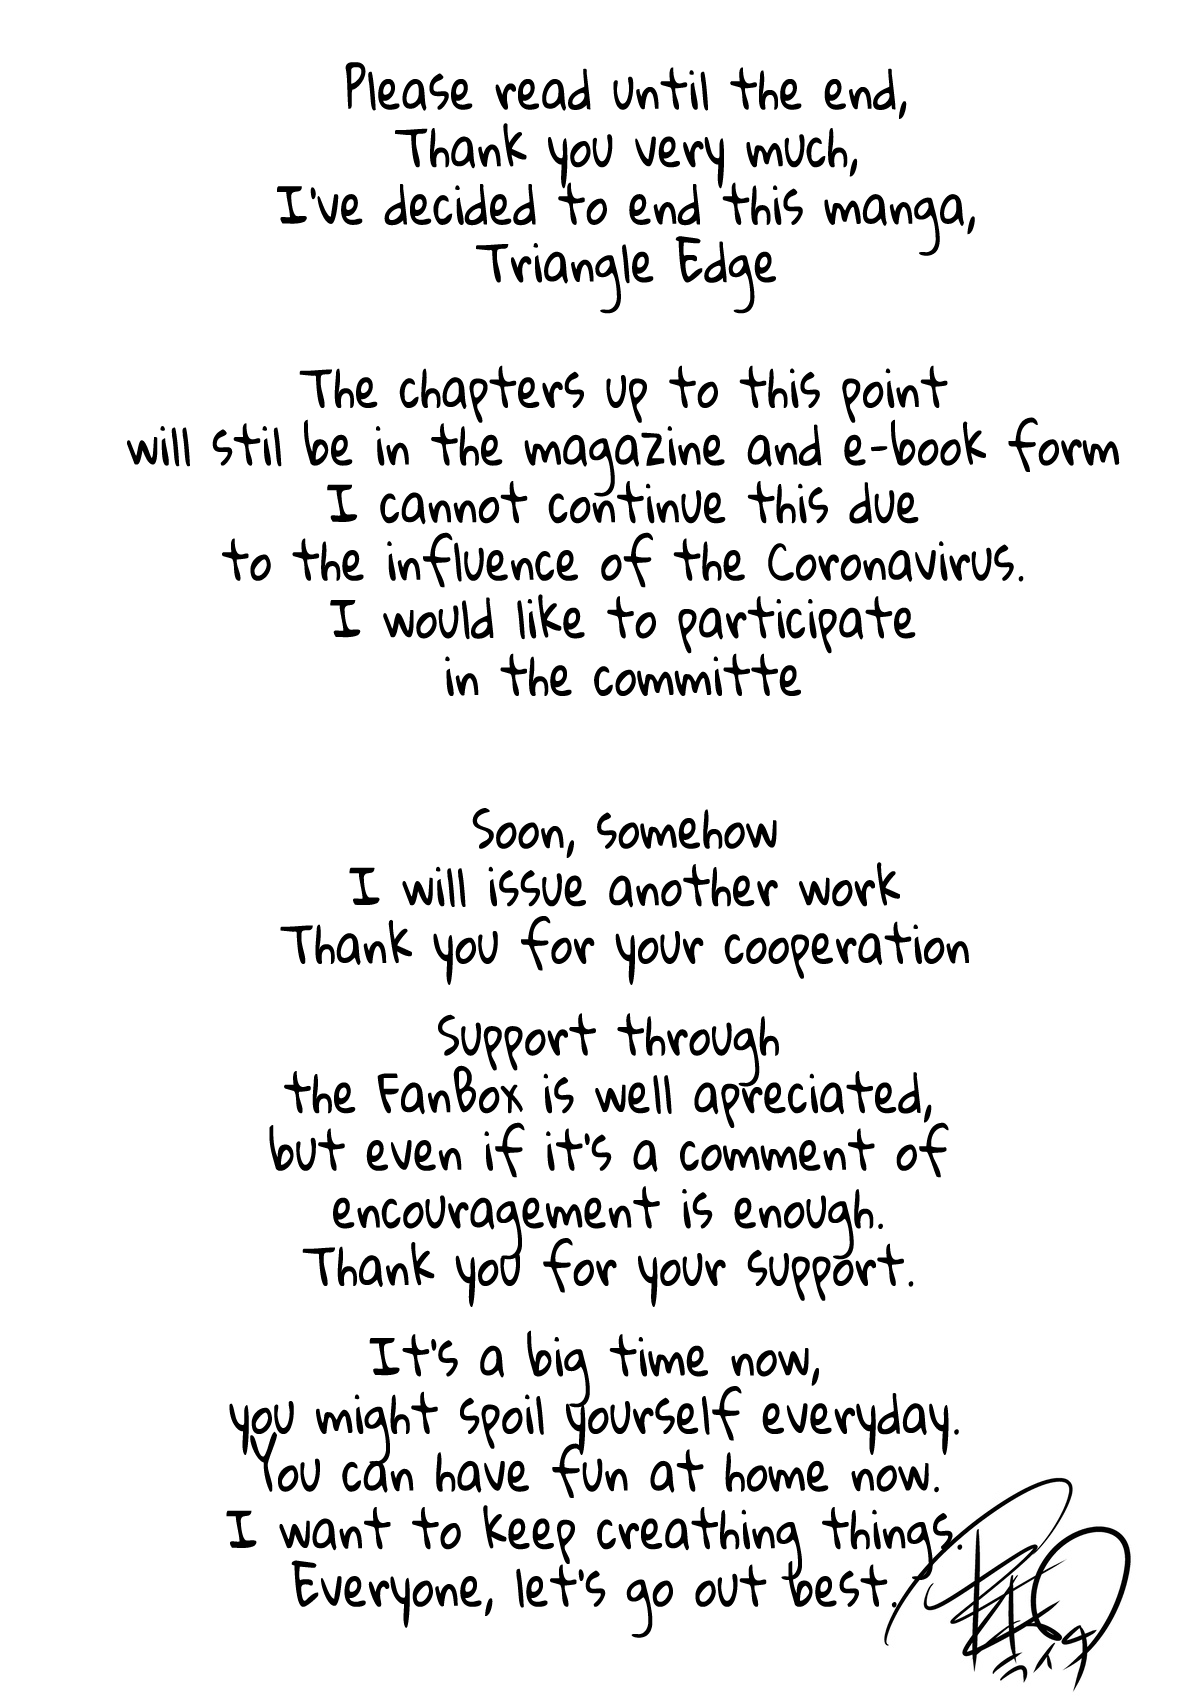 Please read until the end,
Thank you very much,
I've decided to end this manga,
Triangle Edge
The chapters up to this point
will stil be in the magazine and e-book form
I cannot continue this due
to the influence of the Coronavirus.
I would like to participate
in the committe
Soon, somehow
I will issue another work
Thank you for your cooperation
Support through
the FanBox is well apreciated,
but even if it's a comment of
encouragement is enough.
Thank you for your support.
It's a big time now,
you might spoil yourself everyday.
You can have fun at home now.
I want to keep creathing things.
Everyone, let's go out best.